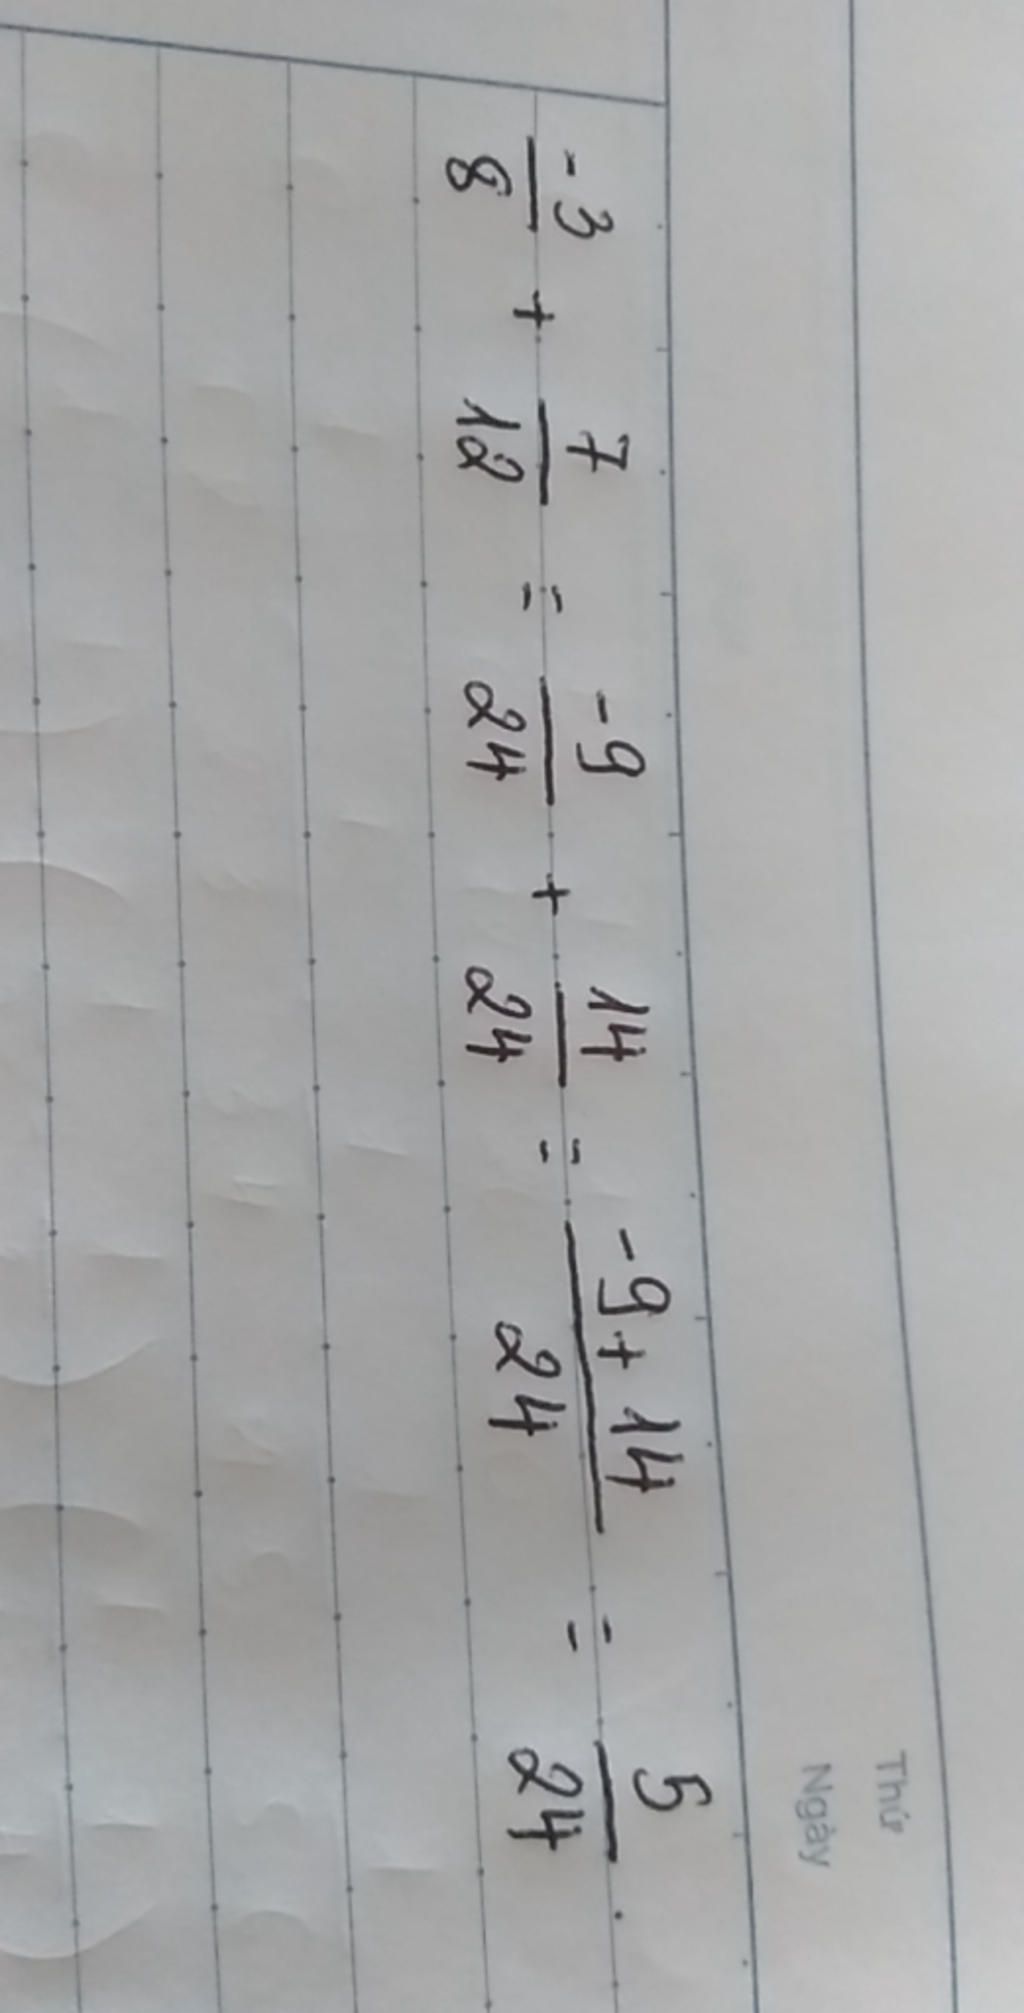 Thứ
Ngày
-3/8 + 7/12 = -9/24 + 14/24 = -9+14/24 = 5/24.